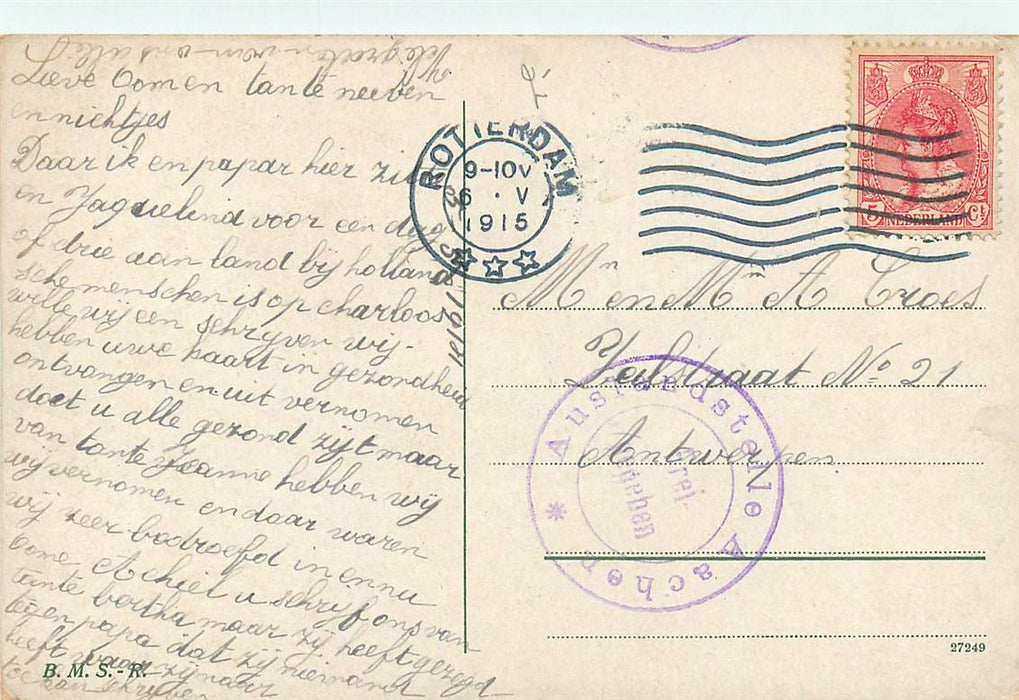 Lieve Oom en tante neeven
en nichtjes
Daar ik en papar hier
en Jaquelind voor een dag
of drie aan land bij holland
sche menschen is op charloos
wille wij een schrijven wij-
hebben uwe kaart in gezondheid
ontvangen en uit vernomen
dat u alle gezond zijt maar
van tante Jeanne hebben wij
wij vernomen en daar waren
wij zeer bedroefd in en nu
ome Achiel u schrijf ons van
tante bertha maar zij heeft gezegd
tegen papa dat zij niemand
heeft waar zij naar
toe kan schrijven
B. M. S. - R.
ROTTERDAM
9-10V
6 · V
1915
5 Ct NEDERLAND
Mn en Me A Croes
straat No 21
Antwerpen
* Auslandstelle Aachen
Frei-
gegeben
27249